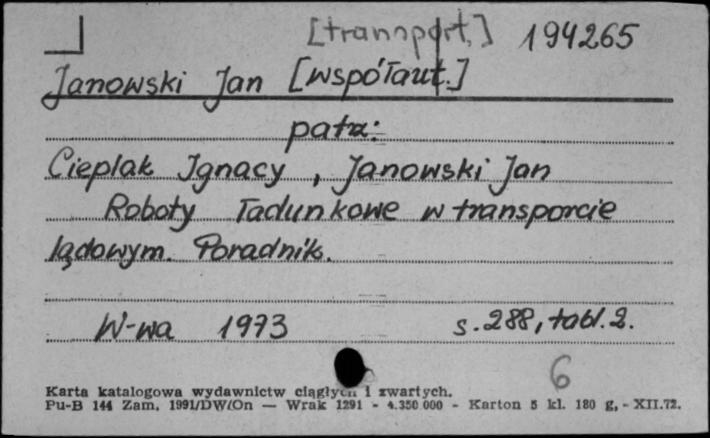 [transport.] 194265
Janowski Jan [współaut.]
patrz:
Cieplak Ignacy, Janowski Jan
Roboty ładunkowe w transporcie
lądowym. Poradnik.
W-wa 1973 s. 288, tabl. 2.
6
Karta katalogowa wydawnictw ciągłych i zwartych.
Pu-B 144 Zam. 1991/DW/On — Wrak 1291 - 4.350 000 - Karton 5 kl. 180 g, - XII.72.